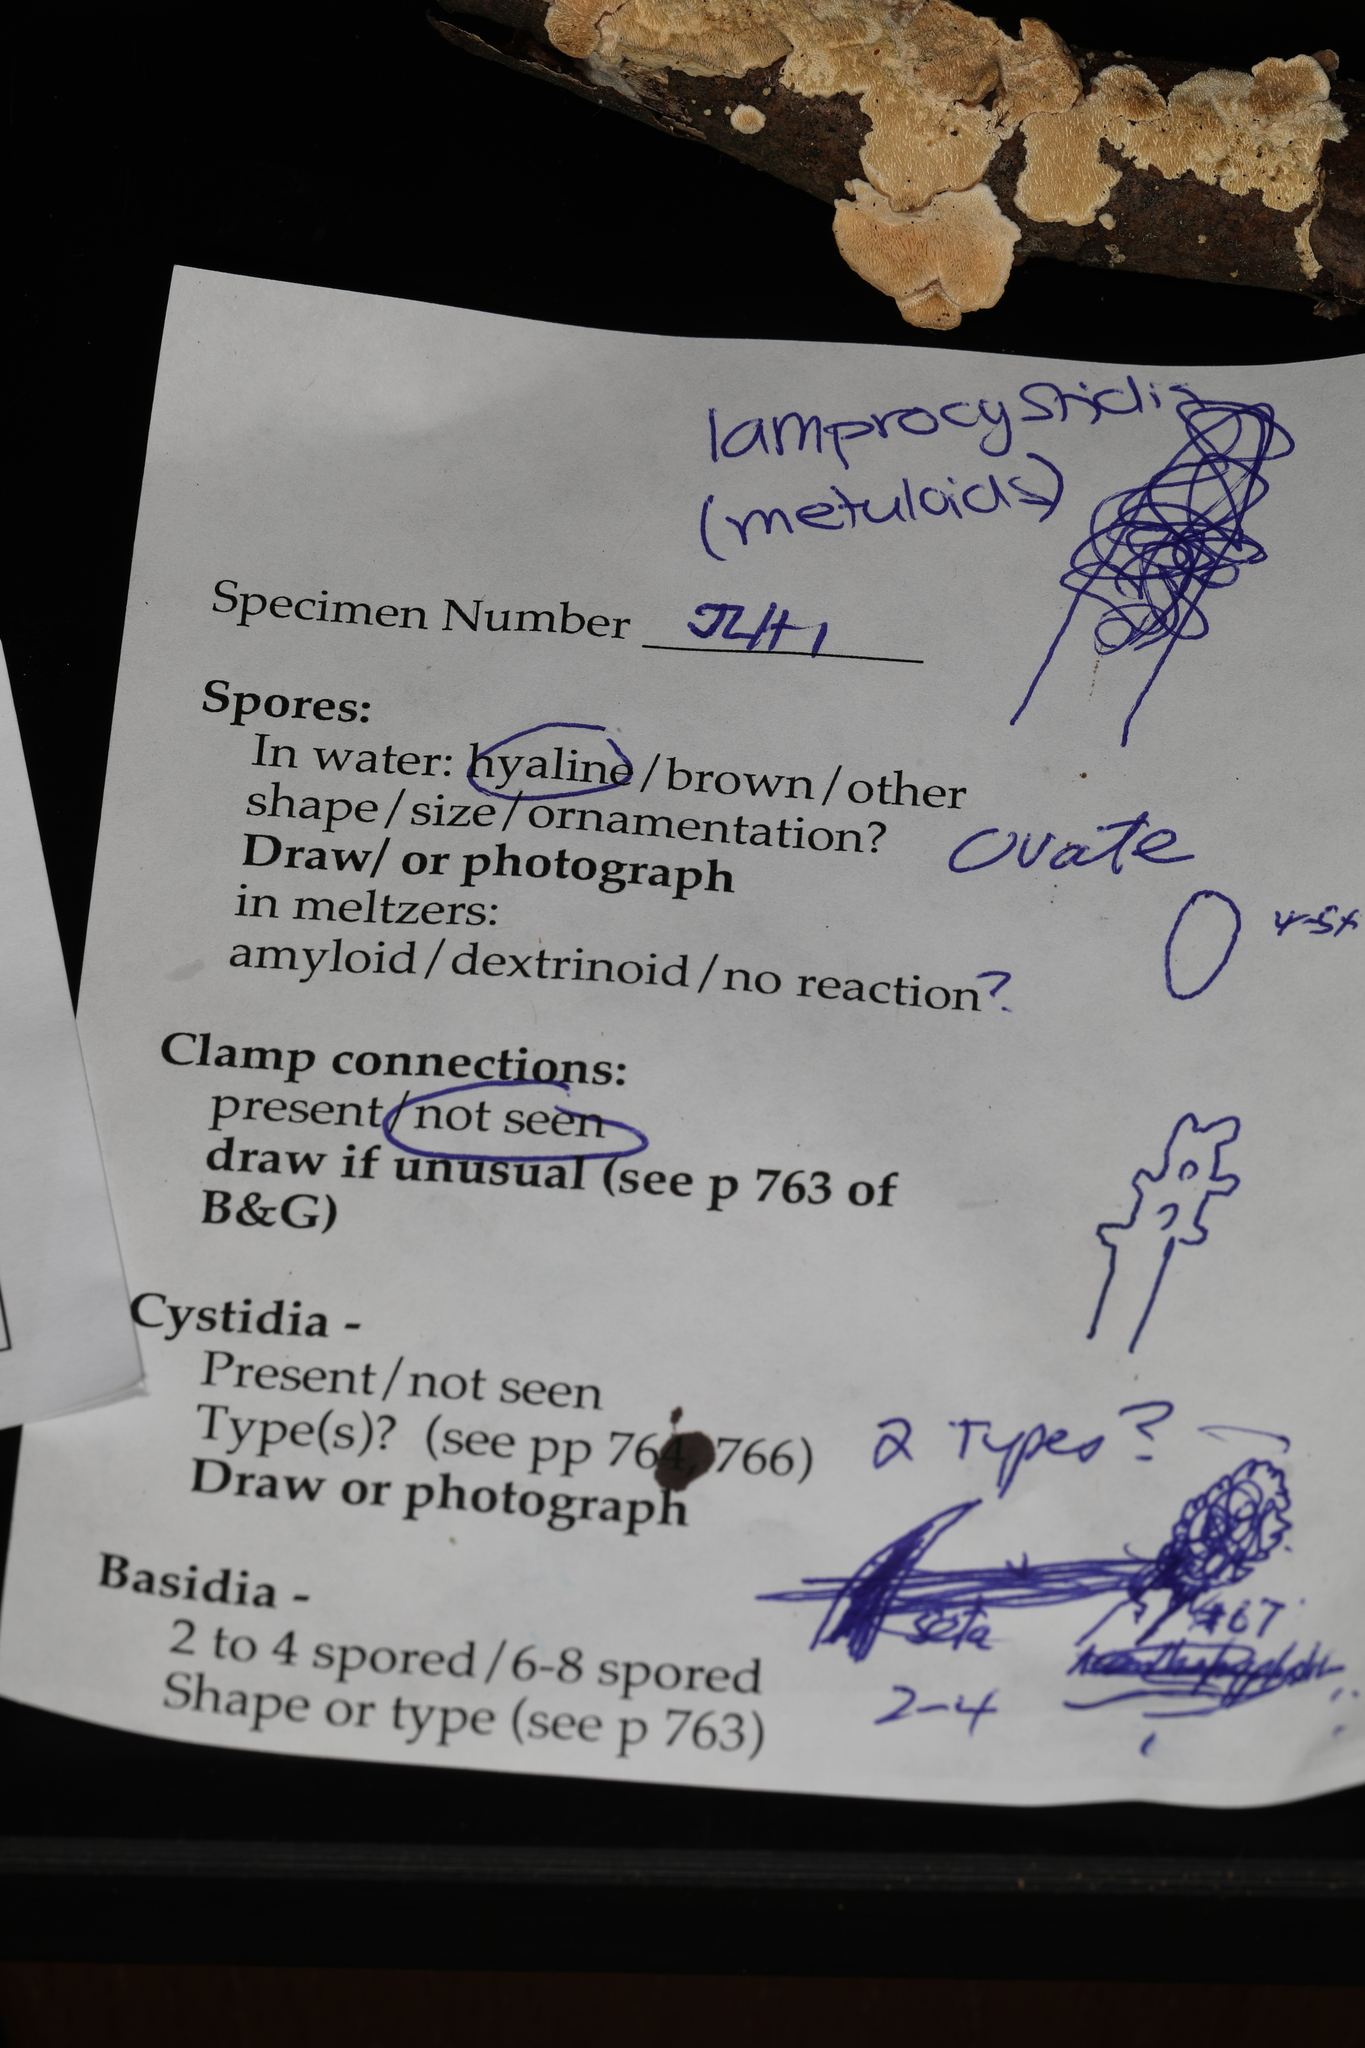 lamprocystidia
(metuloids)
Specimen Number JLH1
Spores:
In water: hyaline/brown/other
shape/size/ornamentation? ovate
Draw/ or photograph
in meltzers: 4-5x
amyloid/dextrinoid/no reaction?
Clamp connections:
present/not seen
draw if unusual (see p 763 of
B&G)
Cystidia -
Present/not seen
Type(s)? (see pp 764, 766) 2 Types?
Draw or photograph
Basidia -
seta
2 to 4 spored/6-8 spored 2-4
Shape or type (see p 763)